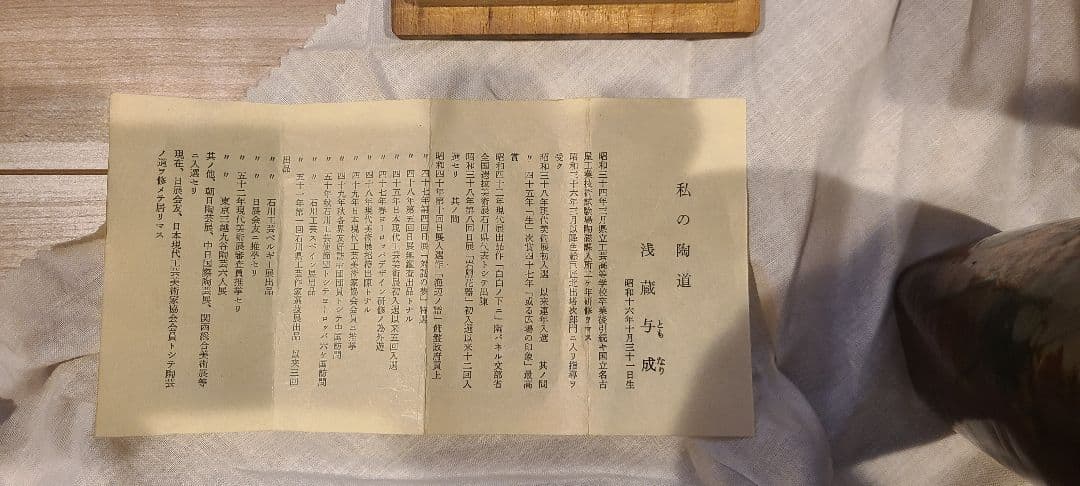 私の陶道
浅蔵与成
とも なり
昭和十六年十月三十一日生
昭和三十四年三月県立工芸高等学校卒業後引続キ国立名古
屋工業技術試験場陶磁課入所二ヶ年研修ス
昭和三十六年三月以降色絵 北出塔次郎門ニ入リ指導ヲ
受ク
昭和三十八年現代美術展初入選 以来連年入選 其ノ間
〃 四十五年「生」次賞四十七年「或る広場の印象」最高
賞
昭和四十二年現代展出品作「白白ノ下ニ」陶パネル文部省
全国選抜美術展石川県代表トシテ出陳
昭和三十八年第八回日展 初入選以来十二回入
選セリ 其ノ間
昭和四十年第 回日展入選作「渡辺ノ譜」 政府買上
〃 四十七年第四回日展「対話の夢」特選
〃 四十八年第五回日展無鑑査出品トナル
〃 四十五年日本現代工芸美術展初入選以来五回入選
〃 四十七年春ヨーロッパデザイン研修ノ為外遊
〃 四十八年現代美術展招待出陳トナル
〃 四十九年日本現代工芸美術家協会会員ニ推挙
〃 四十九年秋各界友好訪中団団員トシテ中国訪問
〃 五十年秋石川工芸使節団トシテヨーロッパ六ヶ国訪問
〃 〃 石川工芸スペイン展出品
〃 五十一年第一回石川県工芸作家選抜展出品 以来三回
出品
〃 〃 石川工芸ベルギー展出品
〃 〃 日展会友ニ推挙セリ
〃 五十二年現代美術展審査員推挙セリ
〃 〃 東京三越九谷陶芸六人展
其ノ他、朝日陶芸展、中日国際陶芸展、関西総合美術展等
ニ入選セリ
現在、日展会友、日本現代工芸美術家協会会員トシテ陶芸
ノ道ヲ修メテ居リマス